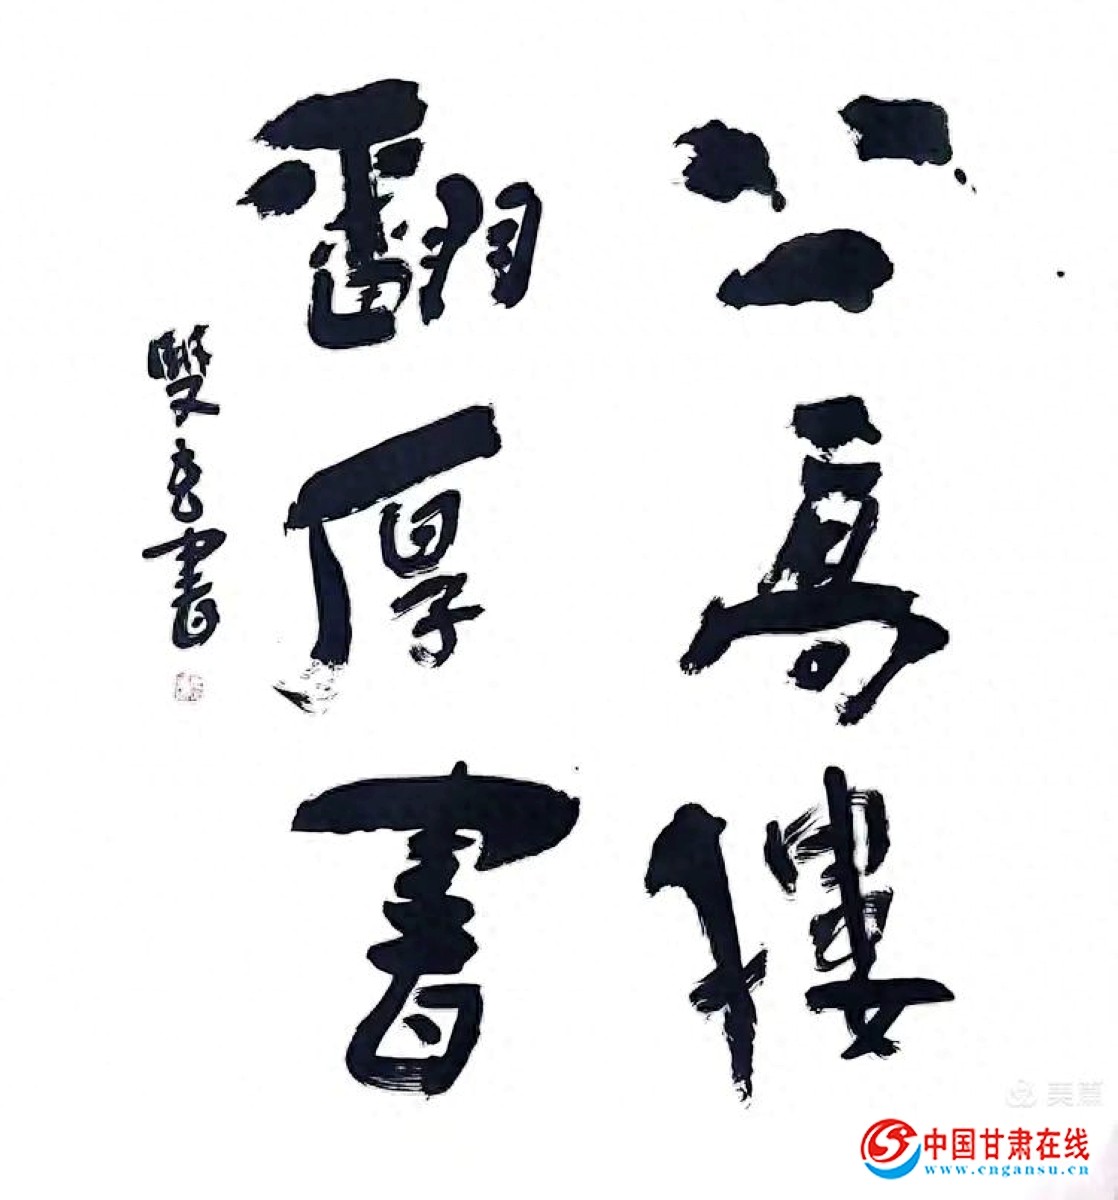 上高樓
翻厚書
雙書
美篇
中国甘肃在线
www.cngansu.cn